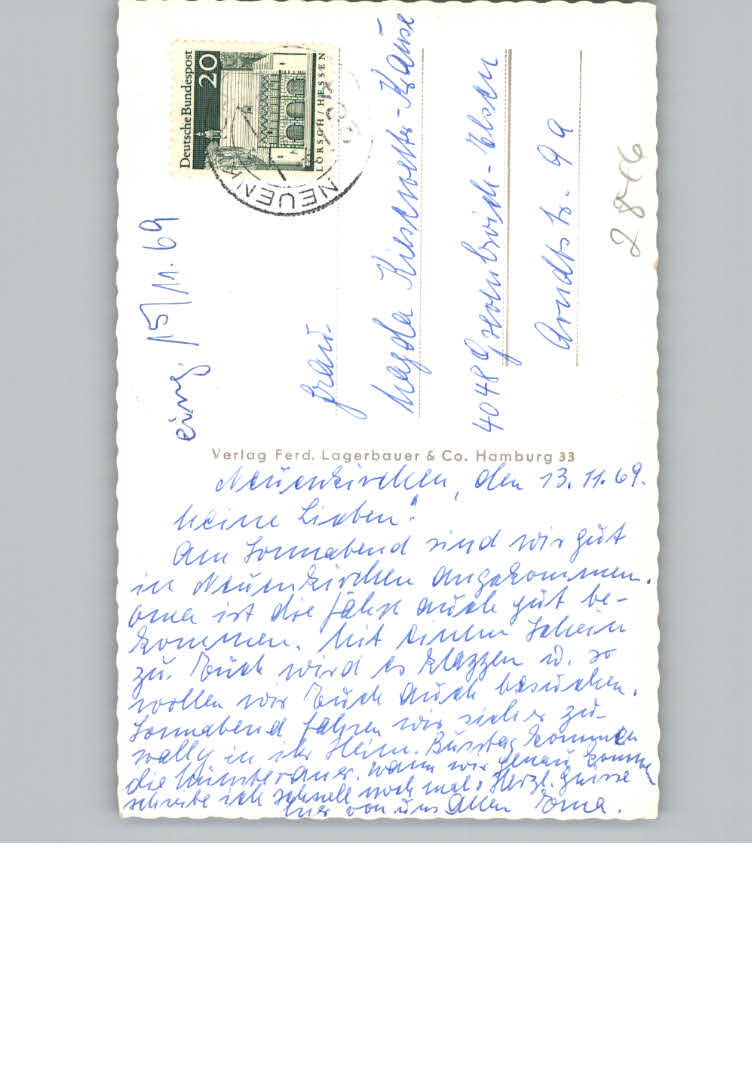 Deutsche Bundespost
20
LORSCH/HESSEN
NEUENK
eing. 15/11. 69
Frau
Magda Kiesewetter-Krause
4048 Grevenbroich-Elsen
Arndtstr. 9a
2 8
Verlag Ferd. Lagerbauer & Co. Hamburg 33
Neuenkirchen, den 13. 11. 69.
Meine Lieben!
Am Sonnabend sind wir gut
in Neuenkirchen angekommen.
Oma ist die Fahrt auch gut be-
kommen. Mit einem Schein
zu Euch wird es klappen u. so
wollen wir Euch auch besuchen.
Sonnabend fahren wir sicher zu-
in ihr Heim. Busstag kommen
die Münsteraner. Wann wir genau kommen
schreibe ich schnell noch mal. Herzl. Grüsse
von uns Allen Erna.